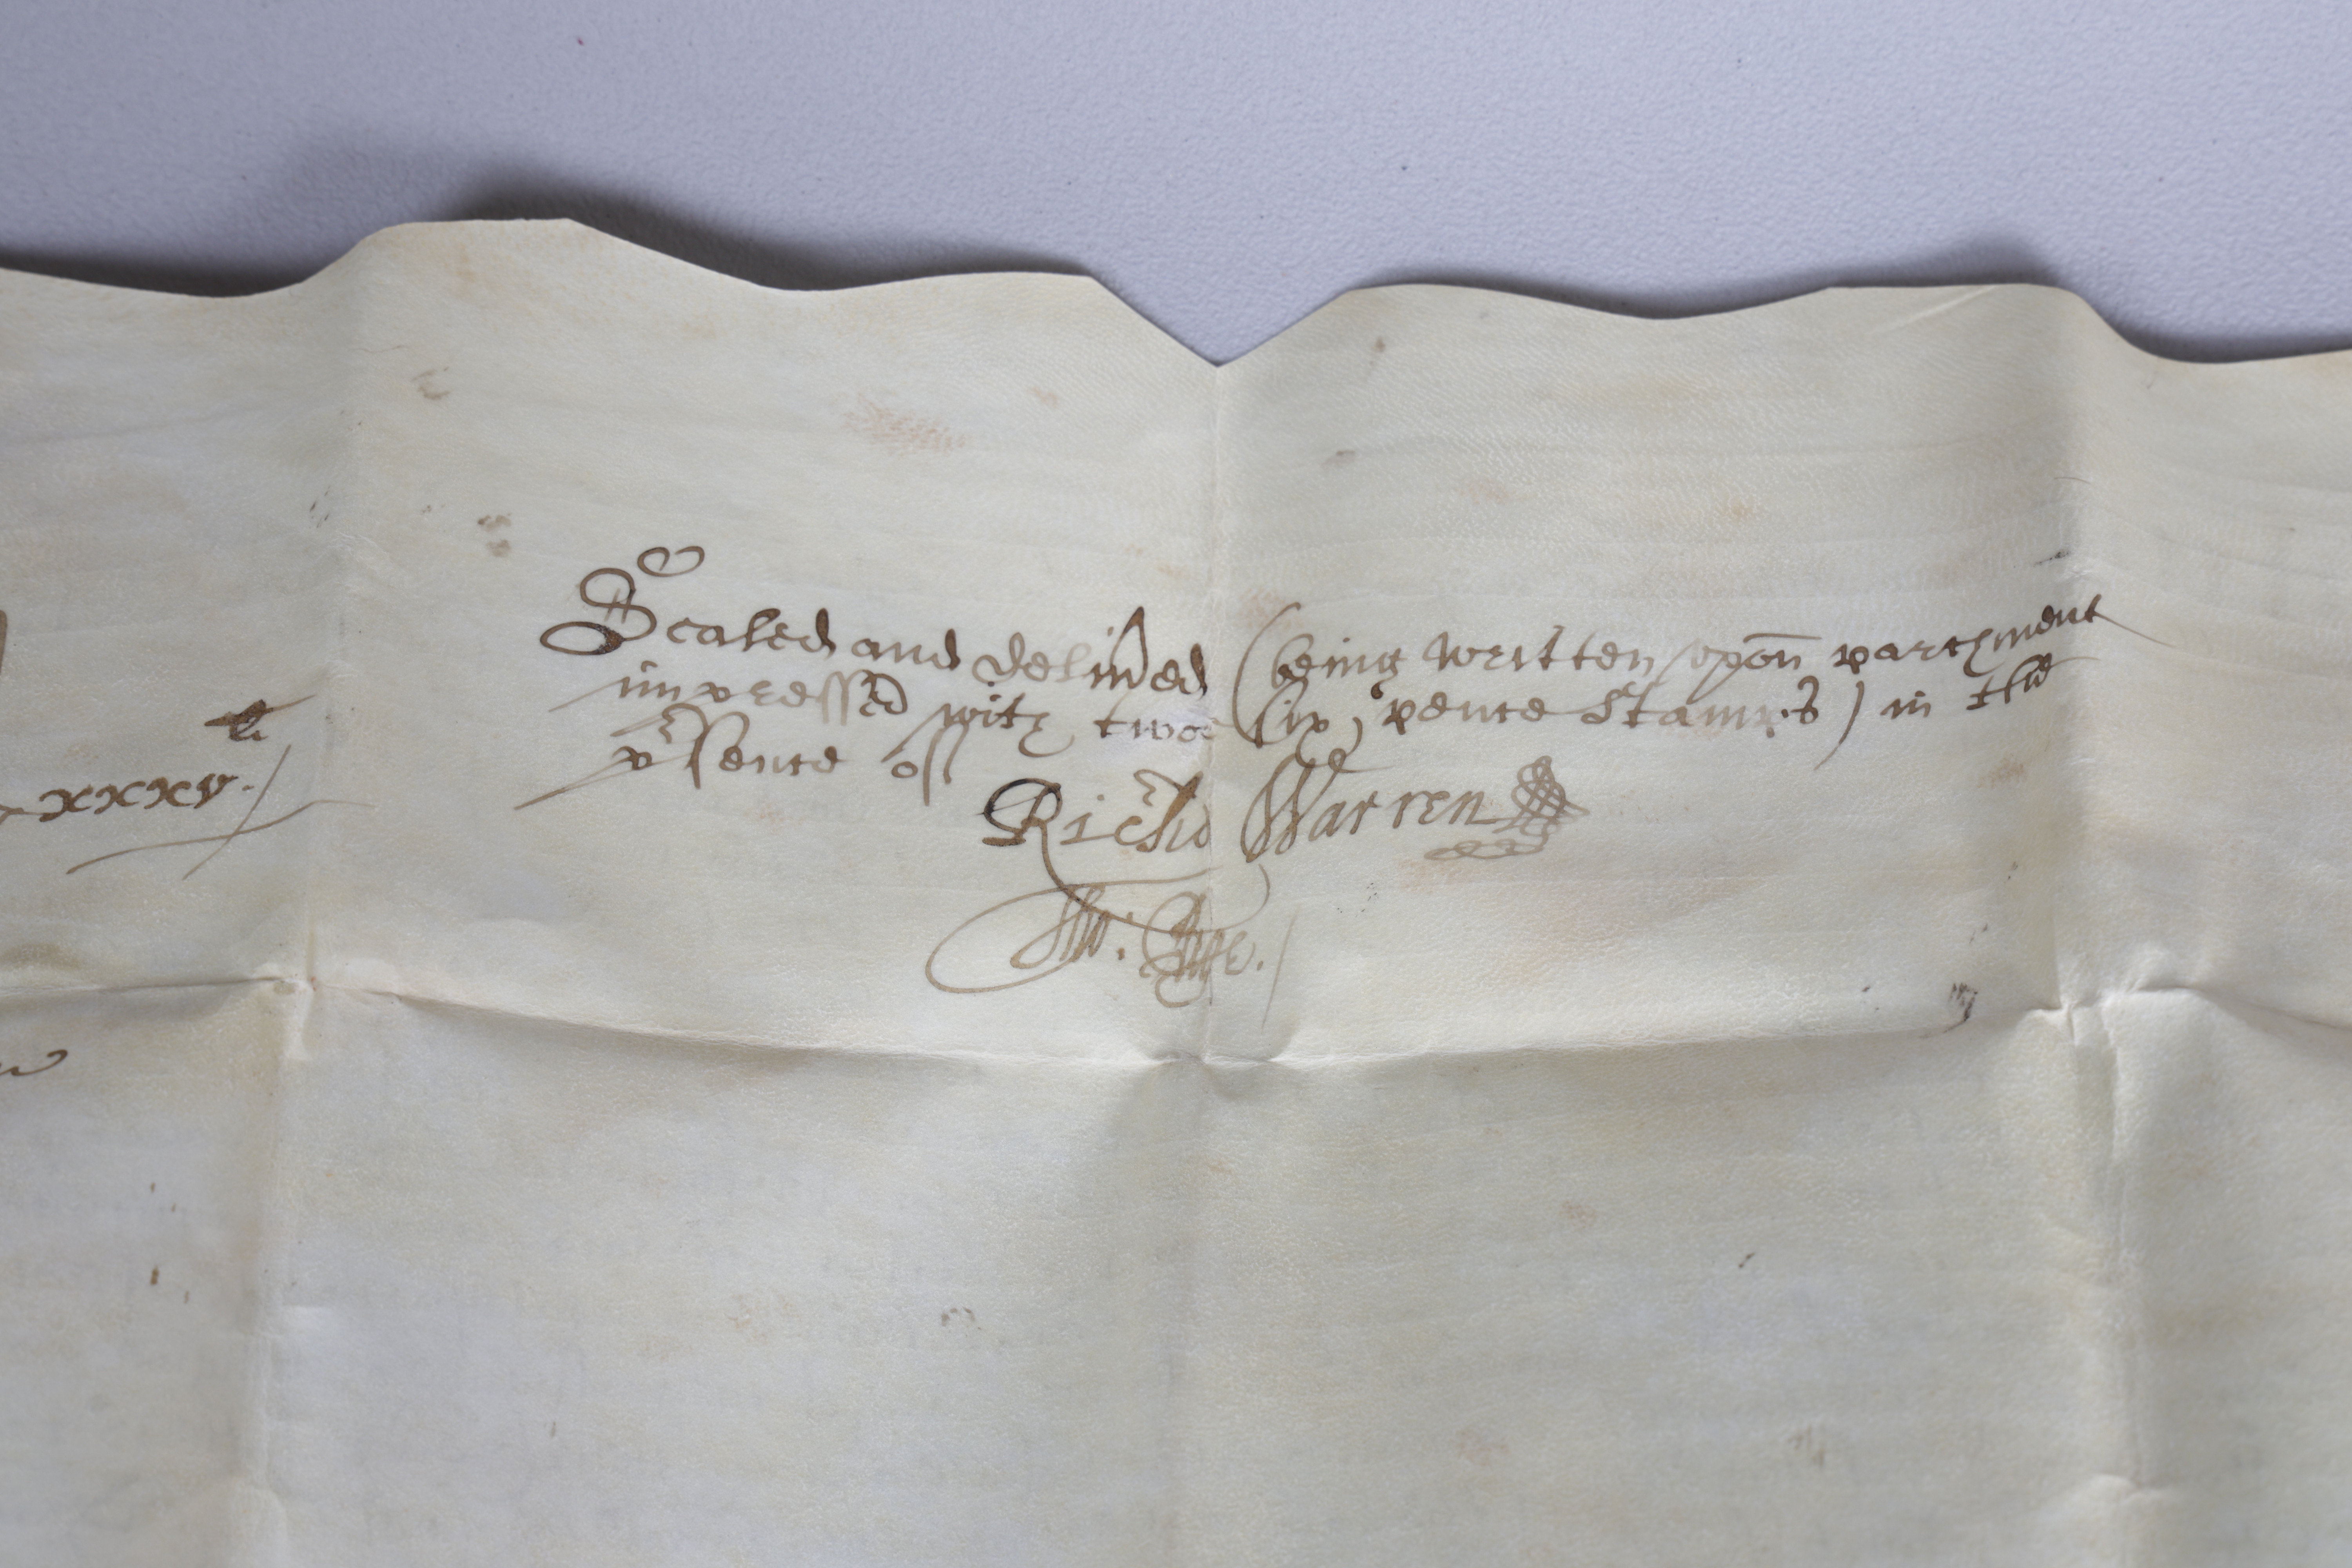 Sealed and delived (being written upon parchment
impressed with two six pence Stamps) in the
pʳsence off
Richd Warren
Tho:
li
xxxv.